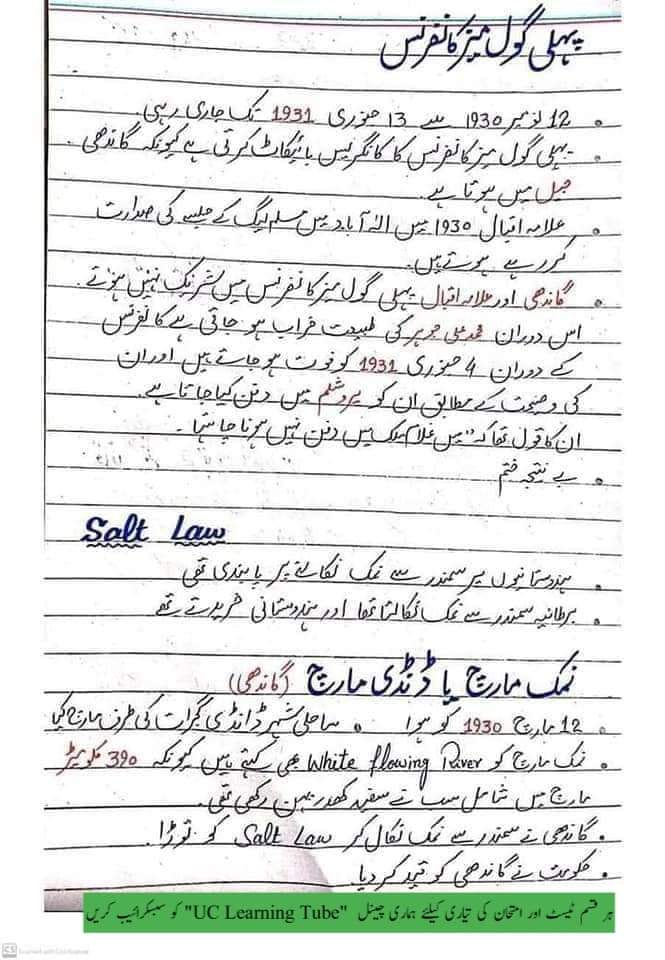 پہلی گول میز کانفرنس
• 12 نومبر 1930 سے 13 جنوری 1931 تک جاری رہی.
• پہلی گول میز کانفرنس کا کانگریس بائیکاٹ کرتی ہے کیونکہ گاندھی
جیل میں ہوتا ہے.
• علامہ اقبال 1930 میں الہٰ آباد میں مسلم لیگ کے جلسے کی صدارت
کر رہے ہوتے ہیں.
• گاندھی اور علامہ اقبال پہلی گول میز کانفرنس میں شریک نہیں ہوتے.
اس دوران محمد علی جوہر کی طبیعت خراب ہو جاتی ہے کانفرنس
کے دوران 4 جنوری 1931 کو فوت ہو جاتے ہیں اور ان
کی وصیت کے مطابق ان کو یروشلم میں دفن کیا جاتا ہے.
ان کا قول تھا کہ "میں غلام ملک میں دفن نہیں ہونا چاہتا".
• بے نتیجہ ختم
Salt Law
• ہندوستانیوں پر سمندر سے نمک نکالنے پر پابندی تھی
• برطانیہ سمندر سے نمک نکالتا تھا اور ہندوستانی خریدتے تھے
نمک مارچ یا ڈنڈی مارچ (گاندھی)
• 12 مارچ 1930 کو ہوا • ساحلی شہر ڈانڈی گجرات کی طرف مارچ کیا
• نمک مارچ کو White flowing River بھی کہتے ہیں کیونکہ 390 کلومیٹر
مارچ میں شامل سب نے سفید کھدر پہن رکھی تھی.
• گاندھی نے سمندر سے نمک نکال کر Salt Law کو توڑا.
• حکومت نے گاندھی کو قید کر دیا
ہر قسم ٹیسٹ اور امتحان کی تیاری کیلئے ہماری چینل "UC Learning Tube" کو سبسکرائیب کریں
CS Scanned with CamScanner